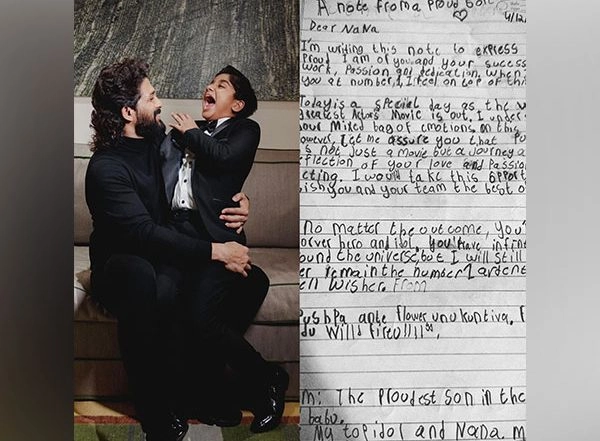 A note from a proud
4/12
Dear NaNa
I'm writing this note to express
proud I am of you and your sucess
work, Passion and dedication. When
you at number 1, I feel on top of th
Today is a special day as the w
greatest Actors Movie is out. I under
your Mixed bag of emotions on this
However, let me assure you that Pu
is not just a movie but a journey a
reflection of your love and Passio
cting. I would take this opport
wish you and your team the best o
no matter the outcome, You'
orver hero and idol. You have infin
ound the universe, but I will still
er remain the number 1 ardent
ell wisher. From
Pushpa ante flower unukuntiva. F
du Wills fire!!!!!",
m: The proudest son in the
babu.
My top idol and Nana. m